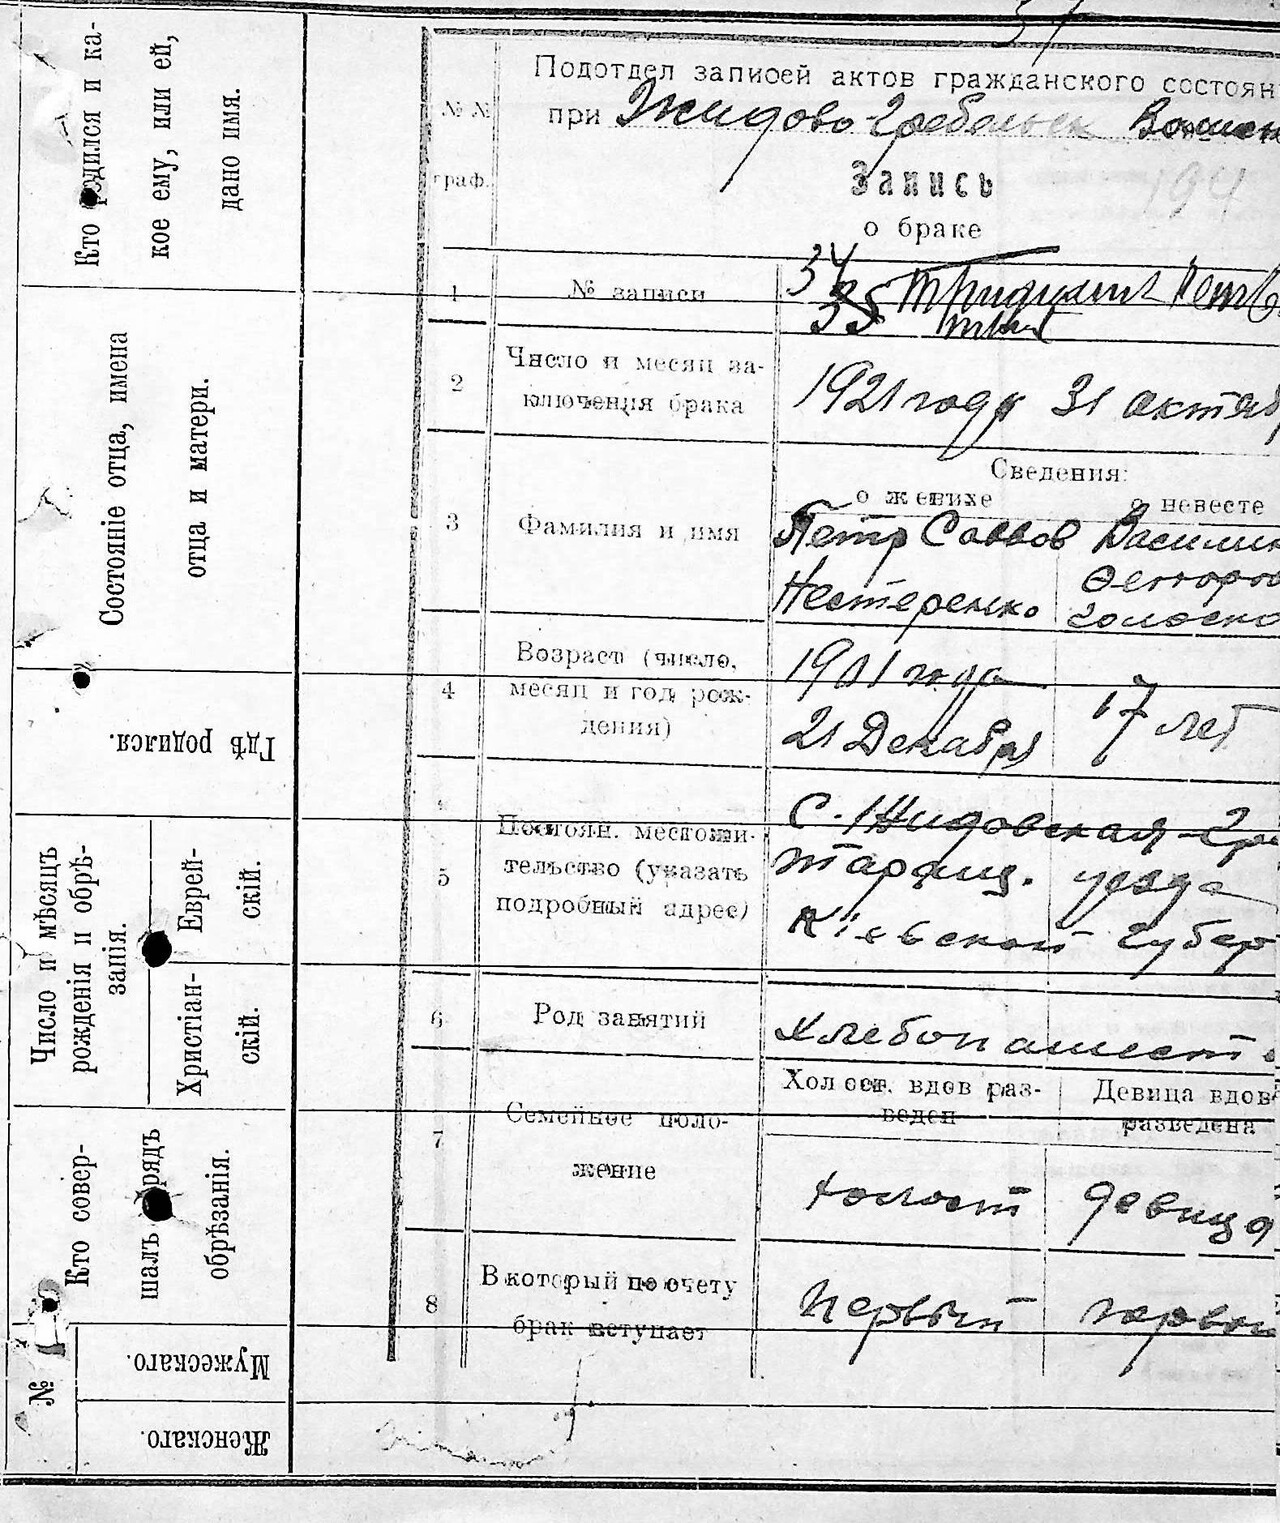 Кто родился и ка-
кое ему, или ей,
дано имя.
Состояніе отца, имена
отца и матери.
Гдѣ родился.
Число и мѣсяцъ
рожденія и обрѣ-
занія.
Еврей-
скій.
Христіан-
скій.
Кто совер-
шалъ
обрѣзанія.
№
Мужескаго.
Женскаго.
№ №
граф.
Подотдел записей актов гражданского состоян
при Жидово-Гребельск Волисп
Запись
194
о браке
1
№ записи
34
35 тридцать
2
Число и месяц за-
ключения брака
1921 году 31 октяб
Сведения:
о женихе
о невесте
3
Фамилия и имя
Петр Саввов
Нестеренко
Василин
4
Возраст (число,
месяц и год рож-
дения)
1901 года
21 Декабря
17 лет
5
Постоян. местожи-
тельство (указать
подробный адрес)
С. Жидовская-Гре
Таращ. уезда
Кіевской губер
6
Род занятий
хлебопашест
7
Семейное поло-
жение
Холост. вдов раз-
веден
Девица вдов
разведена
холост
девица
8
В который по счету
брак вступает
первый
первый